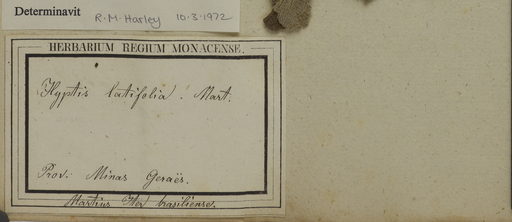 Determinavit R.M. Harley 10.3.1972
HERBARIUM REGIUM MONACENSE.
Hyptis latifolia! Mart.
Prov: Minas Geraës.
Martius Iter brasiliense.